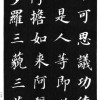 可思議功
是人等即
擔如来阿
羅三藐三